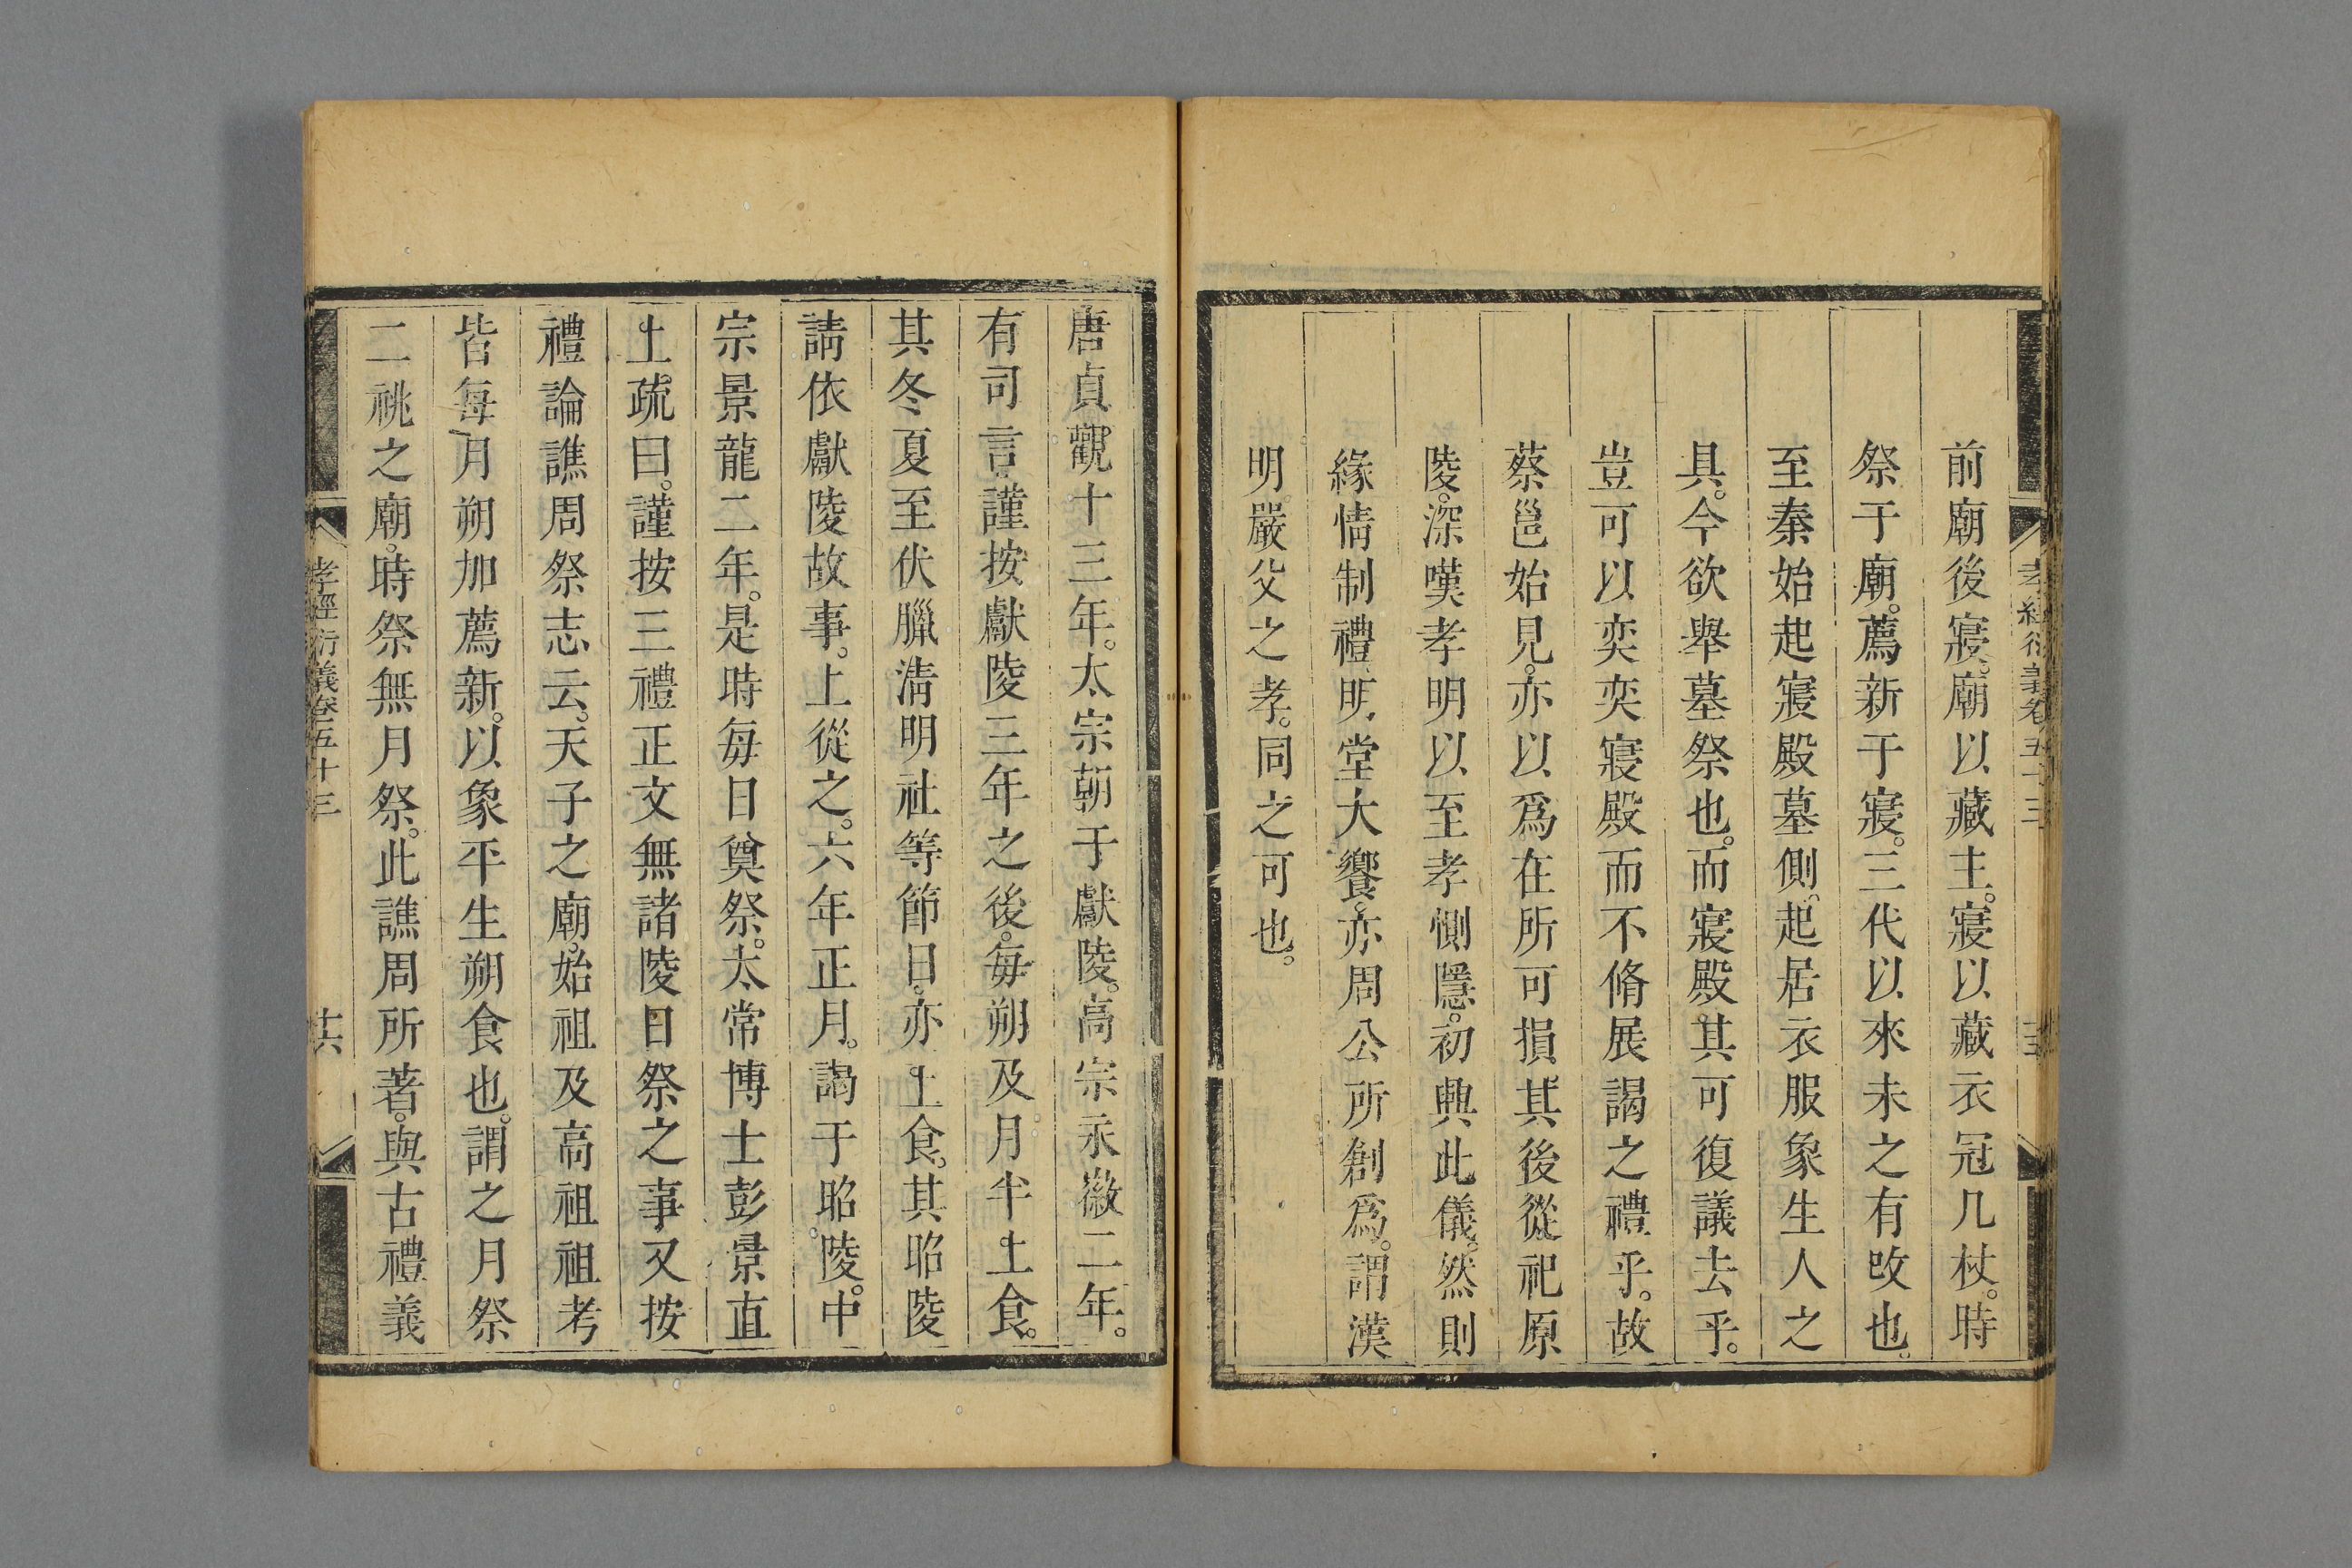 孝經衍義卷五十三
前廟後寢。廟以藏主。寢以藏衣冠几杖。時
祭于廟。薦新于寢。三代以來未之有改也。
至秦始起寢殿墓側。起居衣服象生人之
具。今欲舉墓祭也。而寢殿其可復議去乎。
豈可以奕奕寢殿而不脩展謁之禮乎。故
蔡邕始見。亦以爲在所可損。其後從祀原
陵。深嘆孝明以至孝惻隱。初興此儀。然則
緣情制禮。明堂大饗。亦周公所創爲。謂漢
明嚴父之孝。同之可也。
唐貞觀十三年。太宗朝于獻陵。高宗永徽二年。
有司言。謹按獻陵三年之後。每朔及月半上食。
其冬夏至伏臘淸明社等節日。亦上食。其昭陵
請依獻陵故事。上從之。六年正月。謁于昭陵。中
宗景龍二年。是時每日奠祭。太常博士彭景直
上疏曰。謹按三禮正文無諸陵日祭之事又按
禮論譙周祭志云。天子之廟。始祖及高祖祖考
皆每月朔加薦新。以象平生朔食也。謂之月祭
二祧之廟。時祭無月祭。此譙周所著。與古禮義
孝經衍義卷五十三
十六